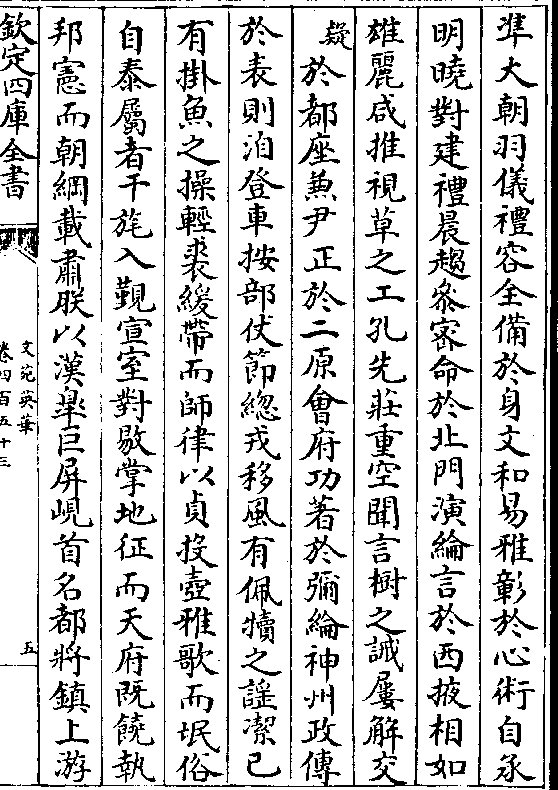 準大朝羽儀禮容全備於身文和易雅彰於心術自承
明曉對建禮晨趨參密命於北門演綸言於西掖相如
雄麗咸推視草之工孔光莊重空聞言樹之誡屢解交
疑於都座兼尹正於二原會府功著於彌綸神州政傳
於表則洎登車按部仗節總戎移風有佩犢之謡潔已
有掛魚之操輕裘緩帶而師律以貞投壺雅歌而氓俗
自泰屬者干旄入覲宣室對敭掌地征而天府既饒執
邦憲而朝綱載肅朕以漢皋巨屏峴首名都將鎮上游
欽定四庫全書
文苑英華
卷四百五十三
五